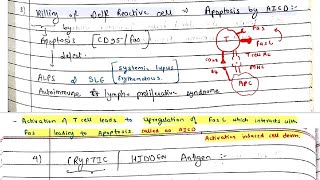 3) Killing of Self Reactive cell → Apoptosis by AICD:-
↓ by
Apoptosis [CD95/Fas]
↓ defect
ALPS & SLE [systemic lupus erythematous.
Autoimmune lympho proliferative syndrome
Fas
Fas L
T
T cell Ac
CD28
B7
MHC
APC
- Activation of T cell leads to Upregulation of Fas L which interacts with
Fas leading to Apoptosis called as AICD
Activation induced cell death.
4) CRYPTIC / HIDDEN Antigen :-